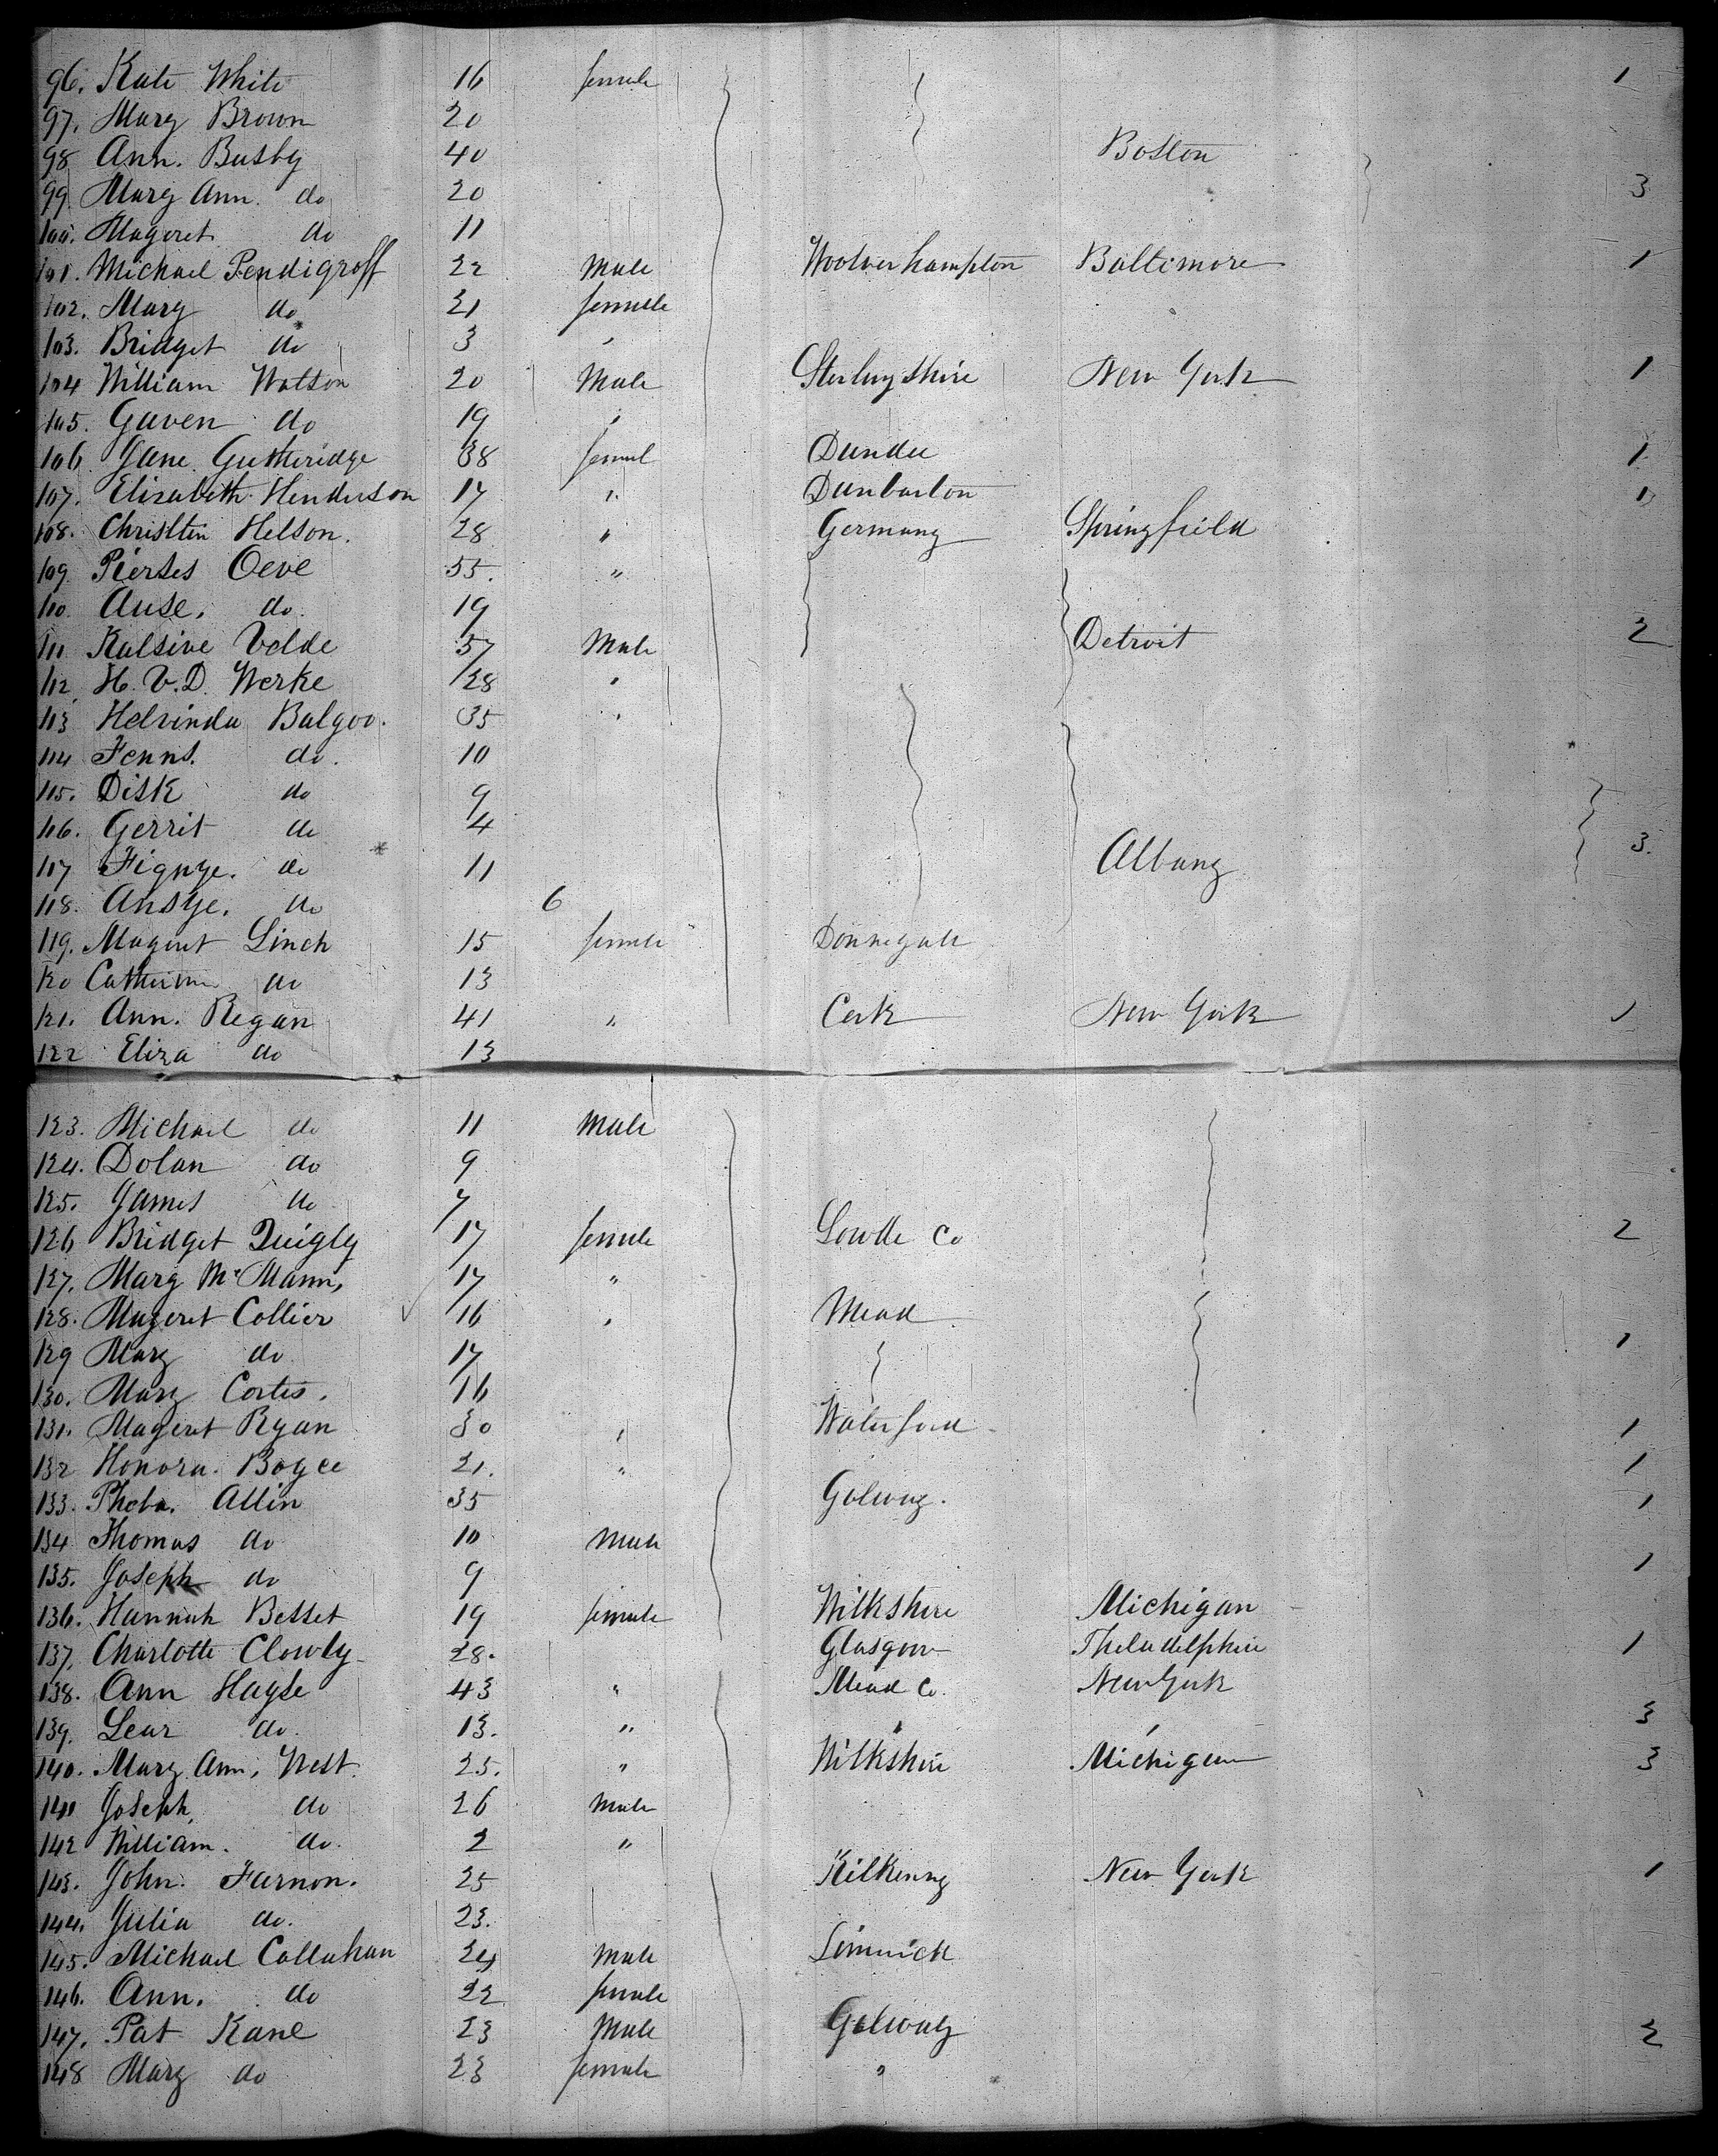 96. Kate White 16 female 1
97. Mary Brown 20
98 Ann. Busby 40 Boston
99 Mary Ann. do 20 3
100. Mageret do 11
101. Michael Pendigroff 22 Male Woolverhampton Baltimore 1
102. Mary do 21 female
103. Bridget do 3 "
104 William Watson 20 Male Sterlingshire New York 1
105. Gaven do 19 "
106 Jane Gutheridge 38 femal Dundee 1
107. Elizabeth Henderson 17 " Dunbarton 1
108. Christtin Helson. 28 " Germany Springfield
109 Pierses Oeve 55. "
110 Ause. do. 19
111 Kalsive Velde 57 Male Detroit 2
112 H. V. D. Werke 28 "
113 Helvinda Balgoo. 35 "
114 Fenns. do. 10
115. Disk do 9
116. Gerrit do 4
117 Fignye. do 11 Albany 3.
118. Ansye. do 6
119. Magerut Linch 15 female Donnegale
120 Catherine do 13
121. Ann. Regan 41 " Cork New York 1
122 Eliza do 13
123. Michael do 11 Male
124. Dolan do 9
125. James do 7
126 Bridget Quigly 17 female Lowde Co 2
127. Mary McMann, 17 "
128. Mageret Collier 16 " Mead
129 Mary do 17 1
130. Mary Cortis. 16
131. Mageret Ryan 30 " Waterford 1
132 Honora. Boyce 21. " 1
133. Pheba. Allin 35 Golway. 1
134 Thomas do 10 Male
135. Joseph do 9 1
136. Hannah Betset 19 female Wilkshire Michigan
137. Charlotte Clowly 28. Glasgow Pheladelphia 1
138. Ann Hayse 43 " Mead Co. New York
139. Lear do. 13. " " " 3
140. Mary Ann. West. 25. " Wilkshire Michigan 3
141 Joseph. do 26 Male
142 William. do. 2 "
143. John. Farnon. 25 Kilkenny New York 1
144. Julia do. 23.
145. Michael Callahan 24 Male Limrick
146. Ann. do 22 female
147. Pat Kane 23 Male Golway 2
148 Mary do 23 female "